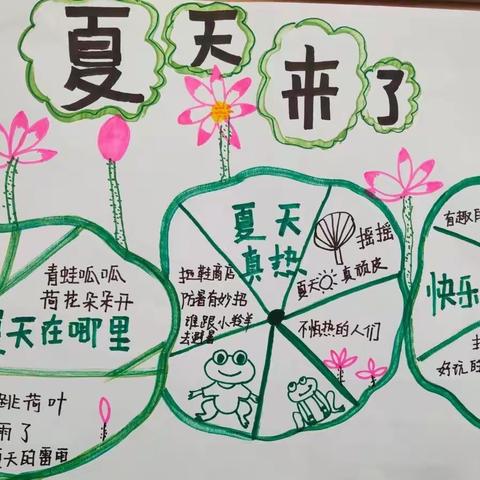 夏天来了
青蛙呱呱
荷花朵朵开
夏天在哪里
跳荷叶
雨了
夏天的雷雨
夏天
真热
扭鞋商店
防暑有妙招
谁跟小羚羊
去避暑
摇摇
夏天真顽皮
不怕热的人们
有趣
快乐
好玩的